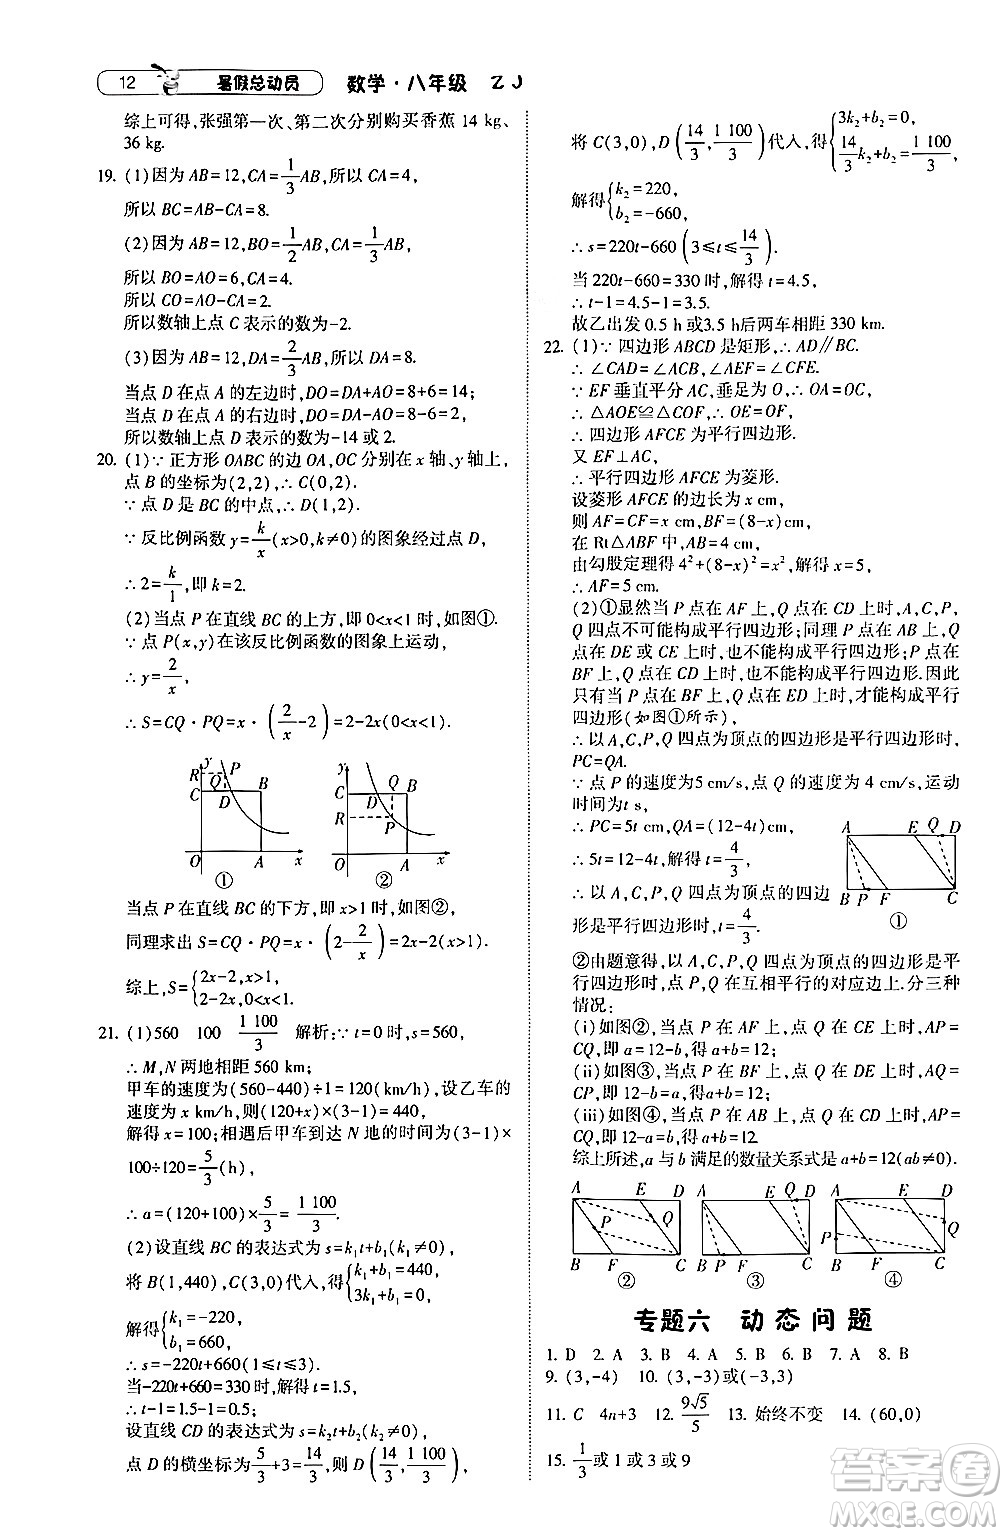 12 暑假总动员 数学·八年级 ZJ
综上可得,张强第一次、第二次分别购买香蕉 14 kg、
36 kg.
19. (1)因为 AB=12,CA=1/3AB,所以 CA=4,
所以 BC=AB-CA=8.
(2)因为 AB=12,BO=1/2AB,CA=1/3AB,
所以 BO=AO=6,CA=4.
所以 CO=AO-CA=2.
所以数轴上点 C 表示的数为-2.
(3)因为 AB=12,DA=2/3AB,所以 DA=8.
当点 D 在点 A 的左边时,DO=DA+AO=8+6=14;
当点 D 在点 A 的右边时,DO=DA-AO=8-6=2,
所以数轴上点 D 表示的数为-14 或 2.
20. (1)∵ 正方形 OABC 的边 OA,OC 分别在 x 轴、y 轴上,
点 B 的坐标为(2,2),∴ C(0,2).
∵ 点 D 是 BC 的中点,∴ D(1,2).
∵ 反比例函数 y=k/x(x>0,k≠0)的图象经过点 D,
∴ 2=k/1,即 k=2.
(2)当点 P 在直线 BC 的上方,即 0<x<1 时,如图①.
∵ 点 P(x,y)在该反比例函数的图象上运动,
∴ y=2/x.
∴ S=CQ·PQ=x·(2/x-2)=2-2x(0<x<1).
R y P Q C D B O A x ①
y C D Q B R P O A x ②
当点 P 在直线 BC 的下方,即 x>1 时,如图②,
同理求出 S=CQ·PQ=x·(2-2/x)=2x-2(x>1).
综上,S={2x-2,x>1,
2-2x,0<x<1.
21. (1)560 100 1 100/3 解析:∵ t=0 时,s=560,
∴ M,N 两地相距 560 km.
甲车的速度为(560-440)÷1=120(km/h),设乙车的
速度为 x km/h,则(120+x)×(3-1)=440,
解得 x=100;相遇后甲车到达 N 地的时间为(3-1)×
100÷120=5/3(h),
∴ a=(120+100)×5/3=1 100/3.
(2)设直线 BC 的表达式为 s=k₁t+b₁(k₁≠0),
将 B(1,440),C(3,0)代入,得{k₁+b₁=440,
3k₁+b₁=0,
解得{k₁=-220,
b₁=660,
∴ s=-220t+660(1≤t≤3).
当-220t+660=330 时,解得 t=1.5,
∴ t-1=1.5-1=0.5.
设直线 CD 的表达式为 s=k₂t+b₂(k₂≠0),
点 D 的横坐标为5/3+3=14/3,则 D(14/3,1 100/3),
将 C(3,0),D(14/3,1 100/3)代入,得{3k₂+b₂=0,
14/3k₂+b₂=1 100/3,
解得{k₂=220,
b₂=-660,
∴ s=220t-660(3≤t≤14/3).
当 220t-660=330 时,解得 t=4.5,
∴ t-1=4.5-1=3.5.
故乙出发 0.5 h或3.5 h后两车相距 330 km.
22. (1)∵ 四边形 ABCD 是矩形,∴ AD∥BC.
∴ ∠CAD=∠ACB,∠AEF=∠CFE.
∵ EF 垂直平分 AC,垂足为 O,∴ OA=OC.
∴ △AOE≌△COF,∴ OE=OF,
∴ 四边形 AFCE 为平行四边形.
又 EF⊥AC,
∴ 平行四边形 AFCE 为菱形.
设菱形 AFCE 的边长为 x cm,
则 AF=CF=x cm,BF=(8-x)cm,
在 Rt△ABF 中,AB=4 cm,
由勾股定理得 4²+(8-x)²=x²,解得 x=5,
∴ AF=5 cm.
(2)①显然当 P 点在 AF 上,Q 点在 CD 上时,A,C,P,
Q 四点不可能构成平行四边形;同理 P 点在 AB 上时,Q
点在 DE 或 CE 上时,也不能构成平行四边形,P 点在
BF 上,Q 点在 CD 上时,也不能构成平行四边形.因此
只有当 P 点在 BF 上,Q 点在 ED 上时,才能构成平行
四边形(如图①所示),
∴ 以 A,C,P,Q 四点为顶点的四边形是平行四边形时,
PC=QA.
∵ 点 P 的速度为5 cm/s,点 Q 的速度为 4 cm/s,运动
时间为t s,
∴ PC=5t cm,QA=(12-4t)cm,
∴ 5t=12-4t,解得 t=4/3,
∴ 以 A,C,P,Q 四点为顶点的四边
形是平行四边形时,t=4/3.
A E Q D B P F C ①
②由题意得,以 A,C,P,Q 为顶点的四边形是平
行四边形时,点 P,Q 在互相平行的对应边上.分三种
情况:
(i)如图②,当点 P 在 AF 上,点 Q 在 CE 上时,AP=
CQ,即 a=12-b,得 a+b=12;
(ii)如图③,当点 P 在 BF 上,点 Q 在 DE 上时,AQ=
CP,即 12-b=a,得 a+b=12;
(iii)如图④,当点 P 在 AB 上,点 Q 在 CD 上时,AP=
CQ,即 12-a=b,得 a+b=12.
综上所述,a 与 b 满足的数量关系式是 a+b=12(ab≠0).
A E D P Q B F C ②
A E Q D B P F C ③
A E D P Q B F C ④
专题六 动态问题
1. D 2. A 3. B 4. A 5. B 6. B 7. A 8. B
9. (3,-4) 10. (3,-3)或(-3,3)
11. C 4n+3 12. 9√5/5 13. 始终不变 14. (60,0)
15. 1/3或 1 或 3 或 9
答案圈
MXQE.COM